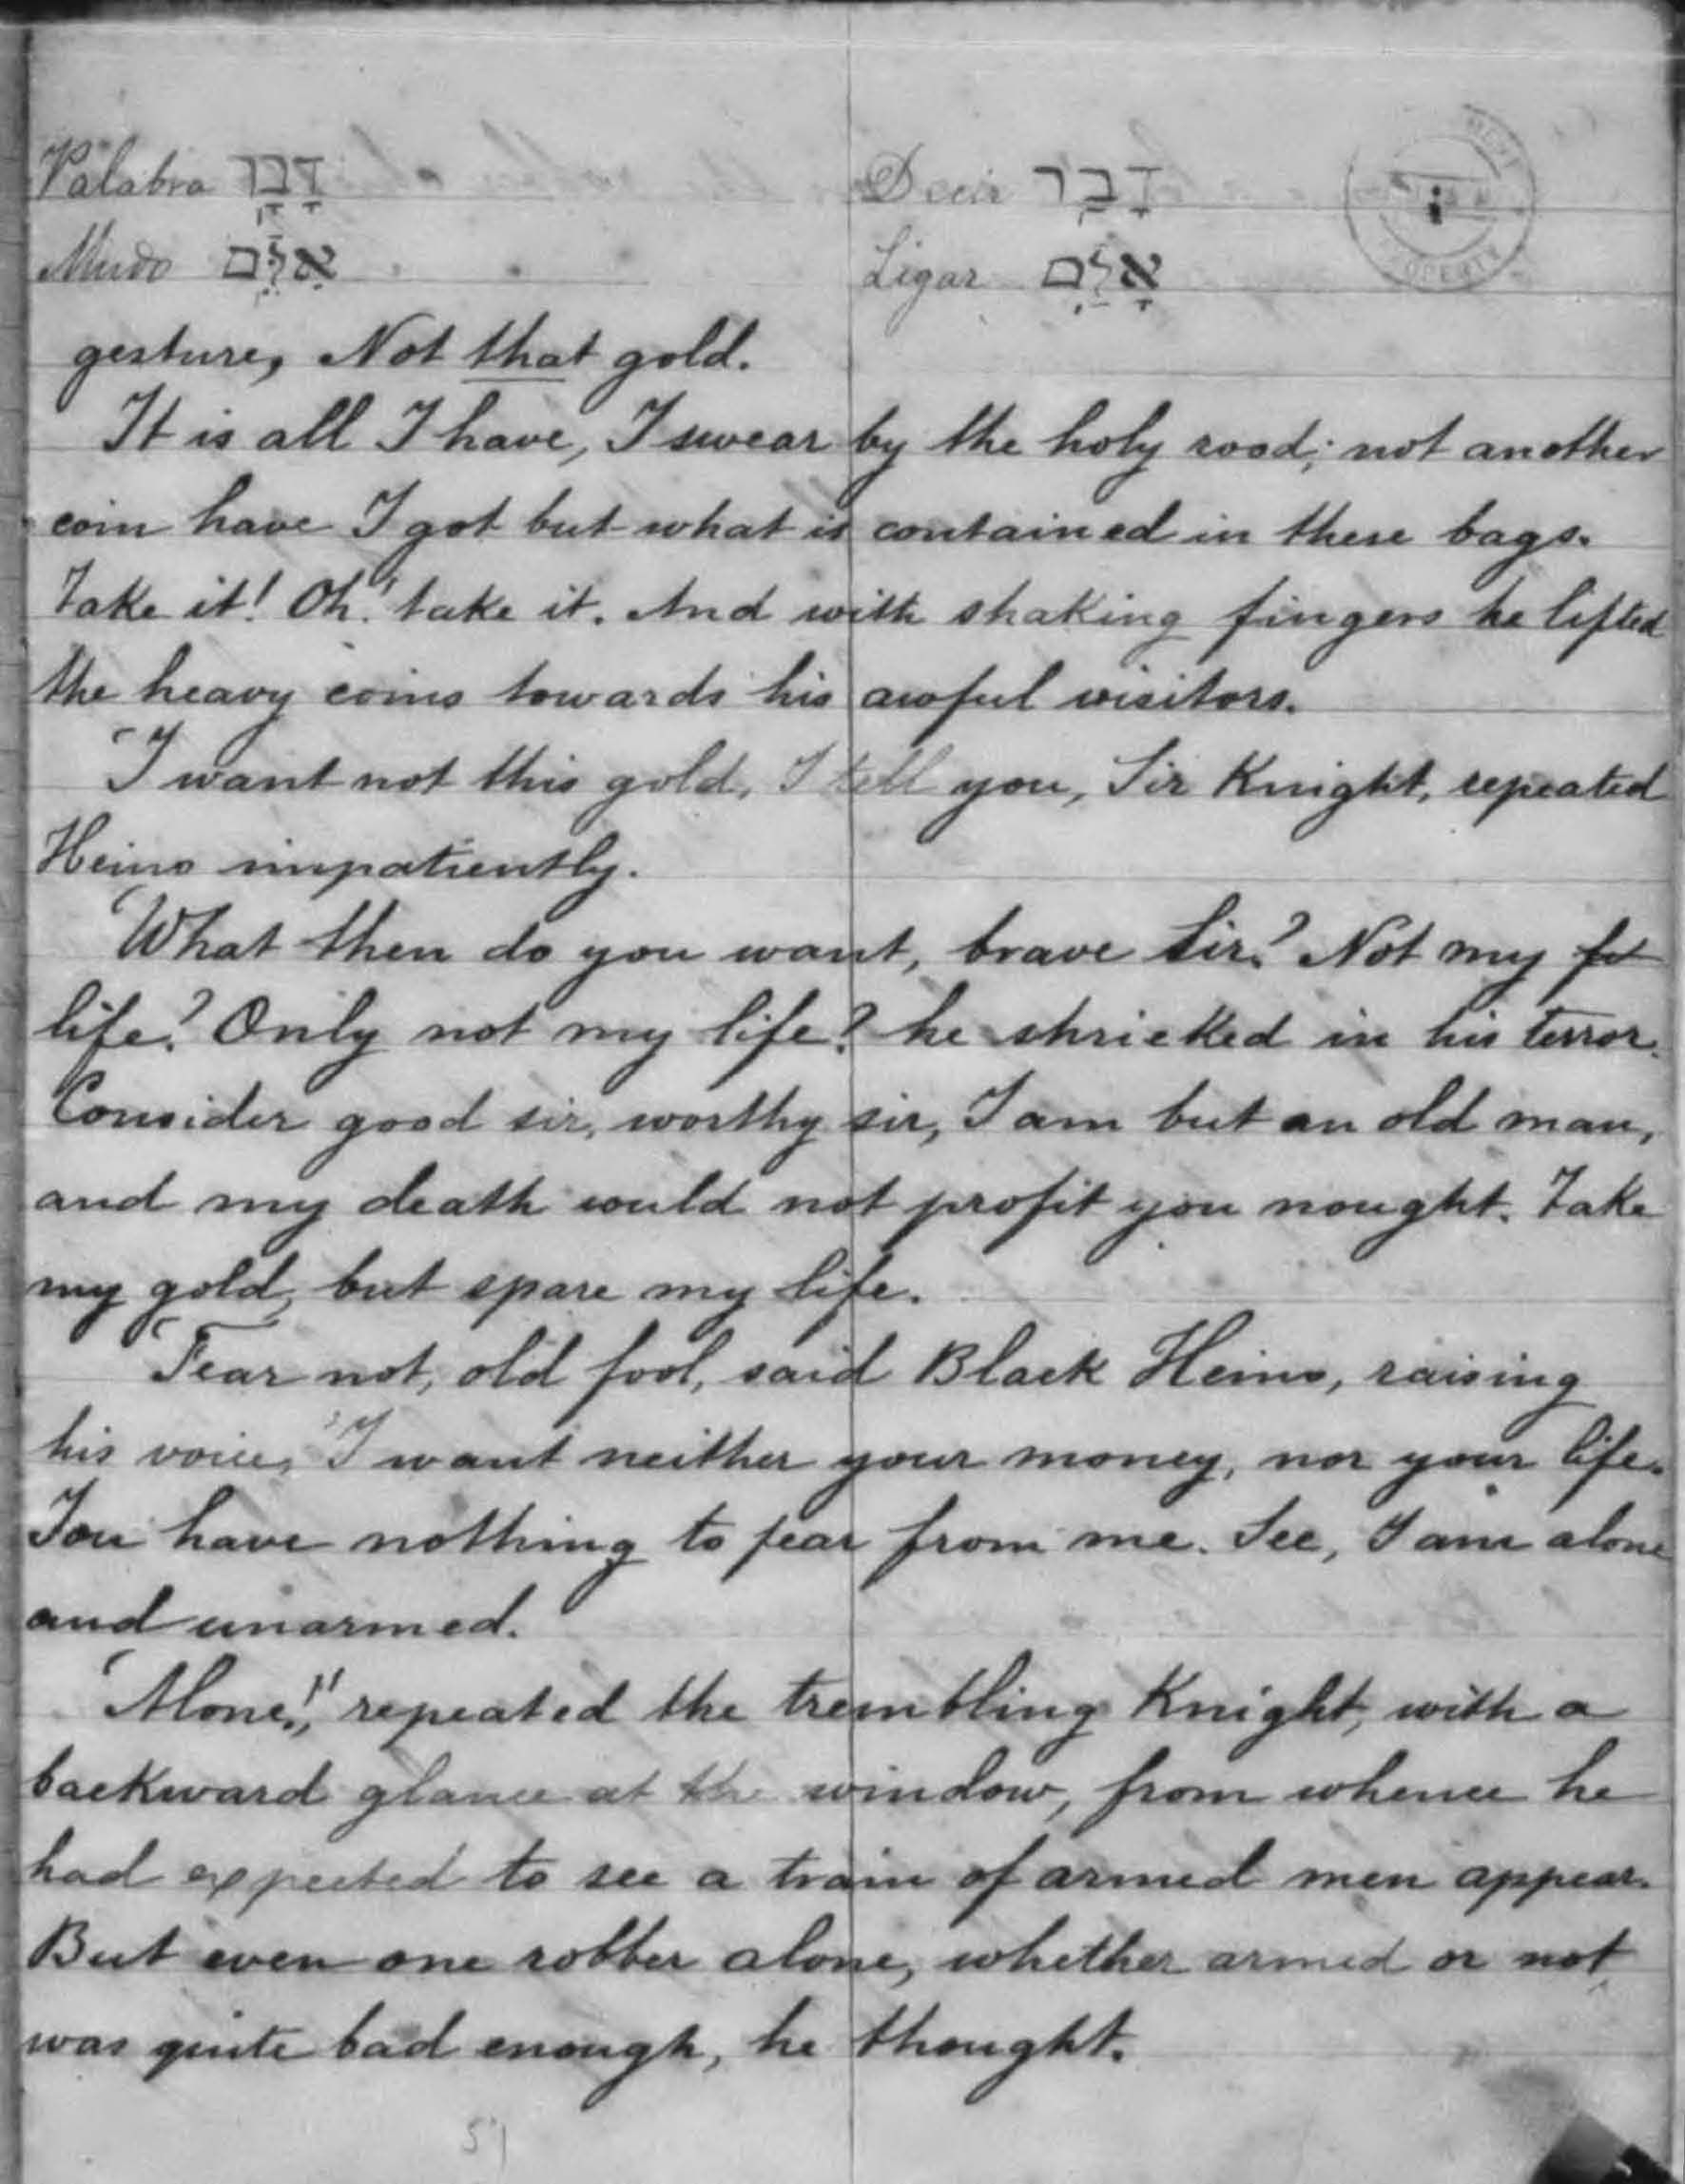 Palabra דָבָר Decir דָבַר
Mudo אִלֵּם Ligar אָלַם
gesture, Not that gold.
It is all I have, I swear by the holy rood; not another
coin have I got but what is contained in these bags.
Take it! Oh! take it. And with shaking fingers he lifted
the heavy coins towards his awful visitors.
"I want not this gold, I tell you, Sir Knight, repeated
Heino impatiently.
"What then do you want, brave Sir? Not my
life? Only not my life? he shrieked in his terror.
Consider good sir, worthy sir, I am but an old man,
and my death would not profit you nought. Take
my gold, but spare my life.
"Fear not, old fool, said Black Heino, raising
his voice, "I want neither your money, nor your life.
You have nothing to fear from me. See, I am alone
and unarmed.
"Alone!", repeated the trembling Knight, with a
backward glance at the window, from whence he
had expected to see a train of armed men appear.
But even one robber alone, whether armed or not,
was quite bad enough, he thought.
51